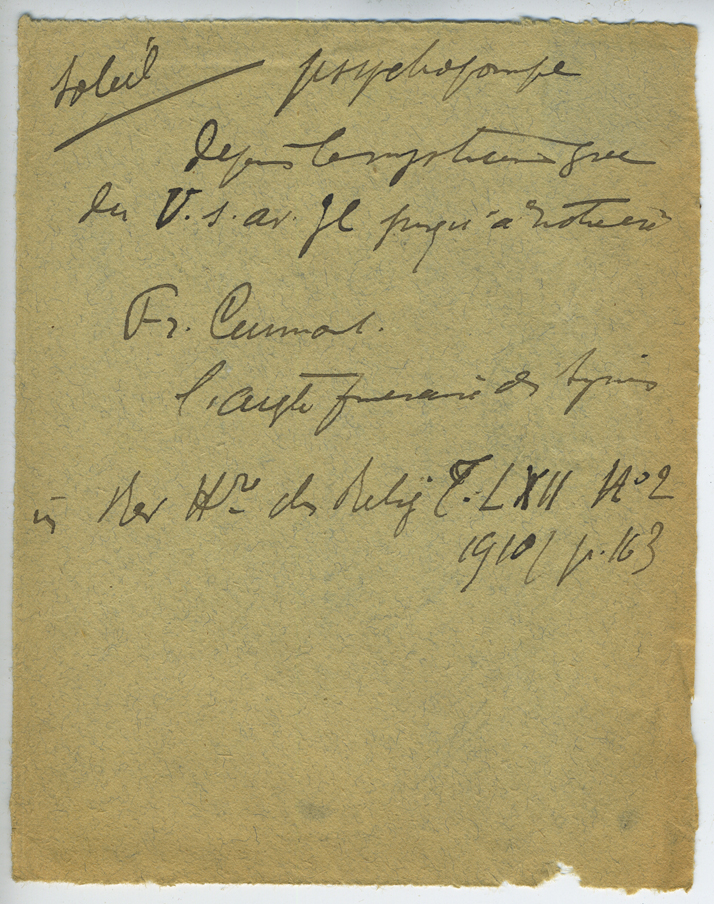 Soleil psychopompe
Depuis le mysticisme grec
du V. s. av. JC jusqu'à notre ère
Fr. Cumont.
l'aigle funéraire des Syriens
in Rev Hre des Relig T. LXII No 2
1910 / p. 163